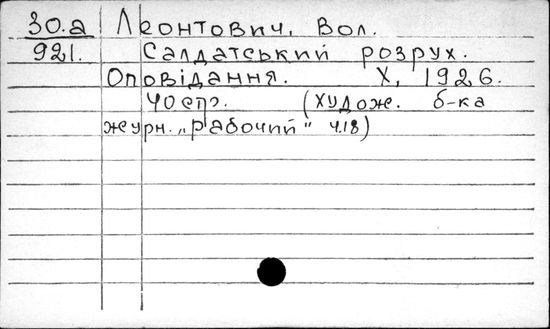 30.а Леонтович, Вол.
921. Салдатський розрух.
Оповідання. Х, 1926.
40стр. (худож. б-ка
журн. „рабочий" ч.18)